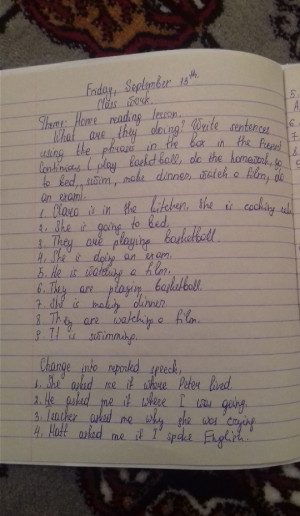 Friday, September 13th.
Class work.
Theme: Home reading lesson.
What are they doing? Write sentences
using the phrases in the box in the Present
Continuous (play basketball, do the homework, go
to bed, swim, make dinner, watch a film, do
an exam).
1. Clara is in the kitchen. She is cooking
2. She is going to bed.
3. They are playing basketball.
4. She is doing an exam.
5. He is watching a film.
6. They are playing basketball.
7. She is making dinner.
8. They are watching a film.
9. It is swimming.
Change into reported speech,
1. She asked me if where Peter lived.
2. He asked me if where I was going.
3. Teacher asked me why she was crying
4. Matt asked me if I spoke English.
5.
6.
7
8
9